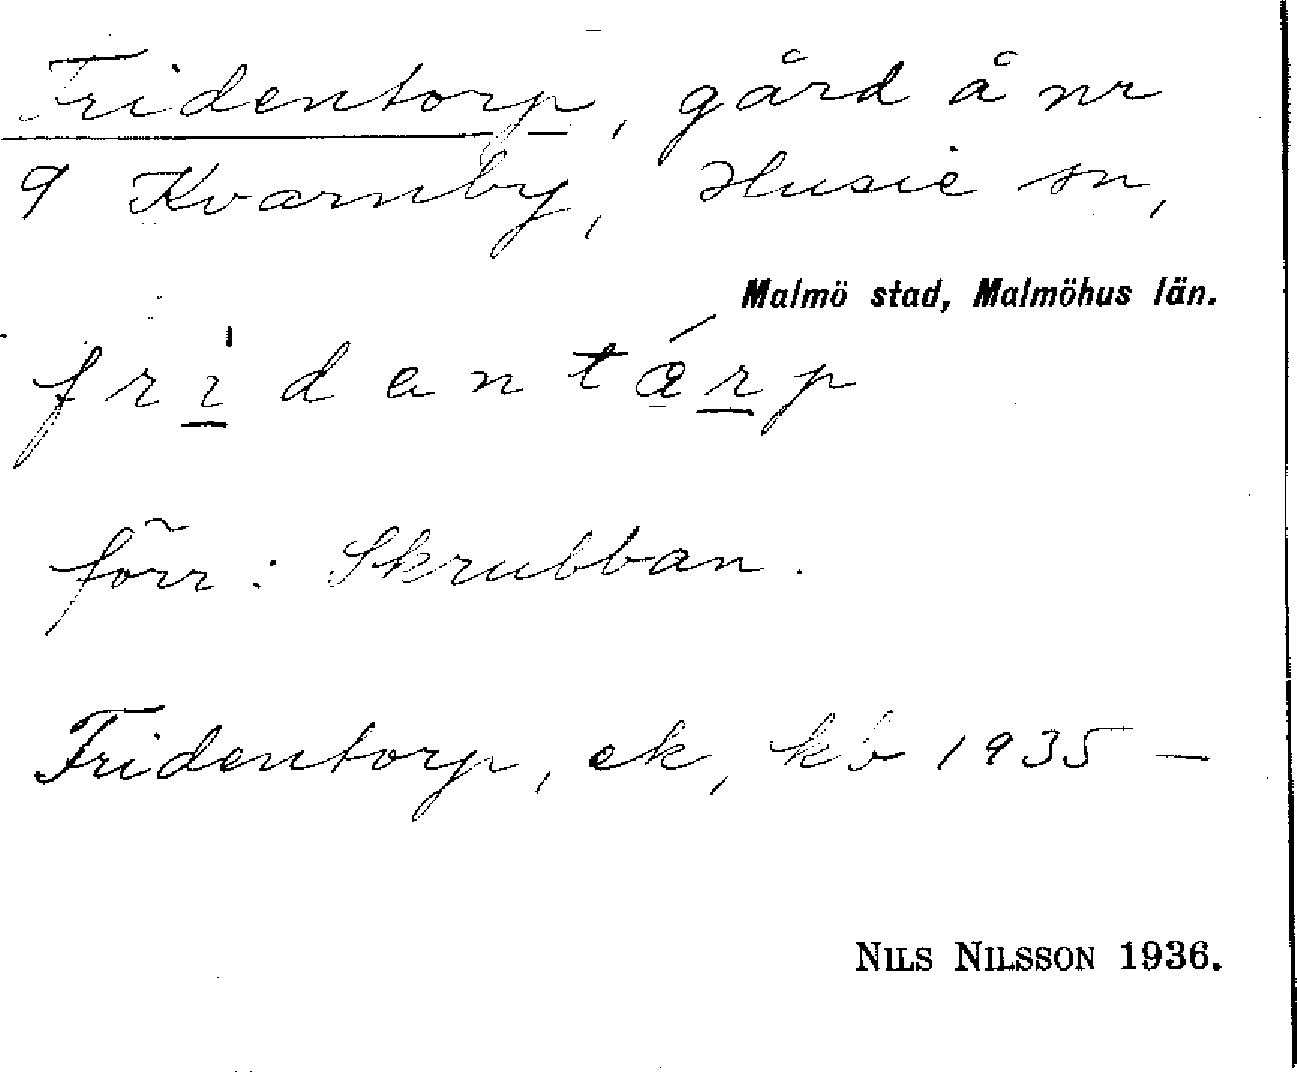 Fridentorp, gård å nr
9 Kvarnby, Husie sn,
Malmö stad, Malmöhus län.
frı̍dentǽrp
förr: Skrubban.
Fridentorp, ek, kb 1935 —
NILS NILSSON 1936.